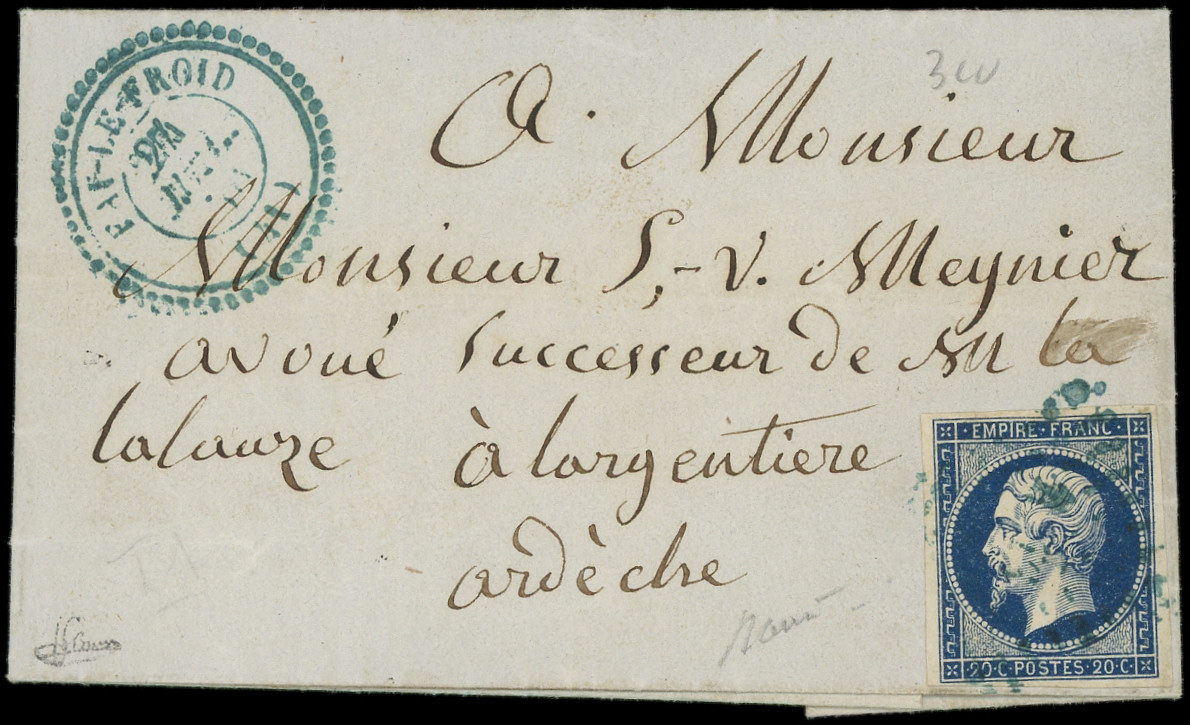 FAY-LE-FROID
(41)
A Monsieur
Monsieur S,- V. Meynier
avoué Successeur de M la
lalauze à largentiere
ardèche
EMPIRE · FRANC ·
20 · C · POSTES · 20 · C ·